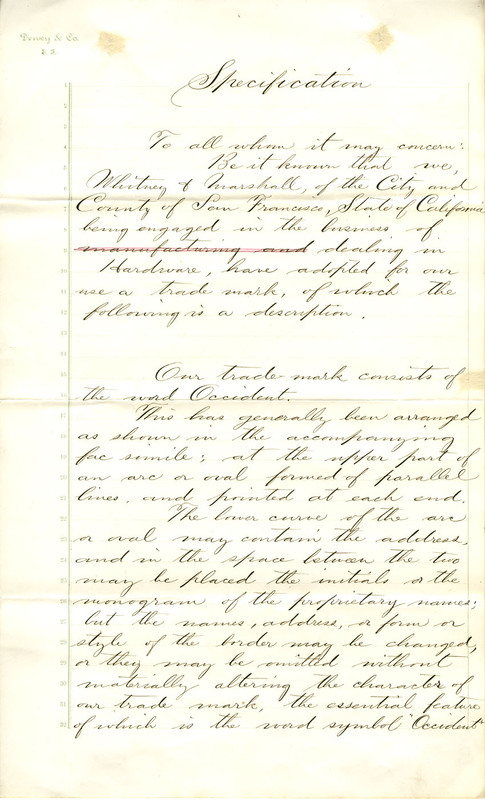 Dewey & Co.
Specification
To all whom it may concern:
Be it known that we,
Whitney & Marshall, of the City and
County of San Francisco, State of California
being engaged in the business of
manufacturing and dealing in
Hardware, have adopted for our
use a trade mark, of which the
following is a description.
Our trade-mark consists of
the word Occident.
This has generally been arranged
as shown in the accompanying
fac simile; at the upper part of
an arc or oval formed of parallel
lines, and pointed at each end.
The lower curve of the arc
or oval may contain the address,
and in the space between the two
may be placed the initials or the
monogram of the proprietary names;
but the names, address, or form or
style of the border may be changed,
or they may be omitted without
materially altering the character of
our trade mark, the essential feature
of which is the word symbol "Occident"